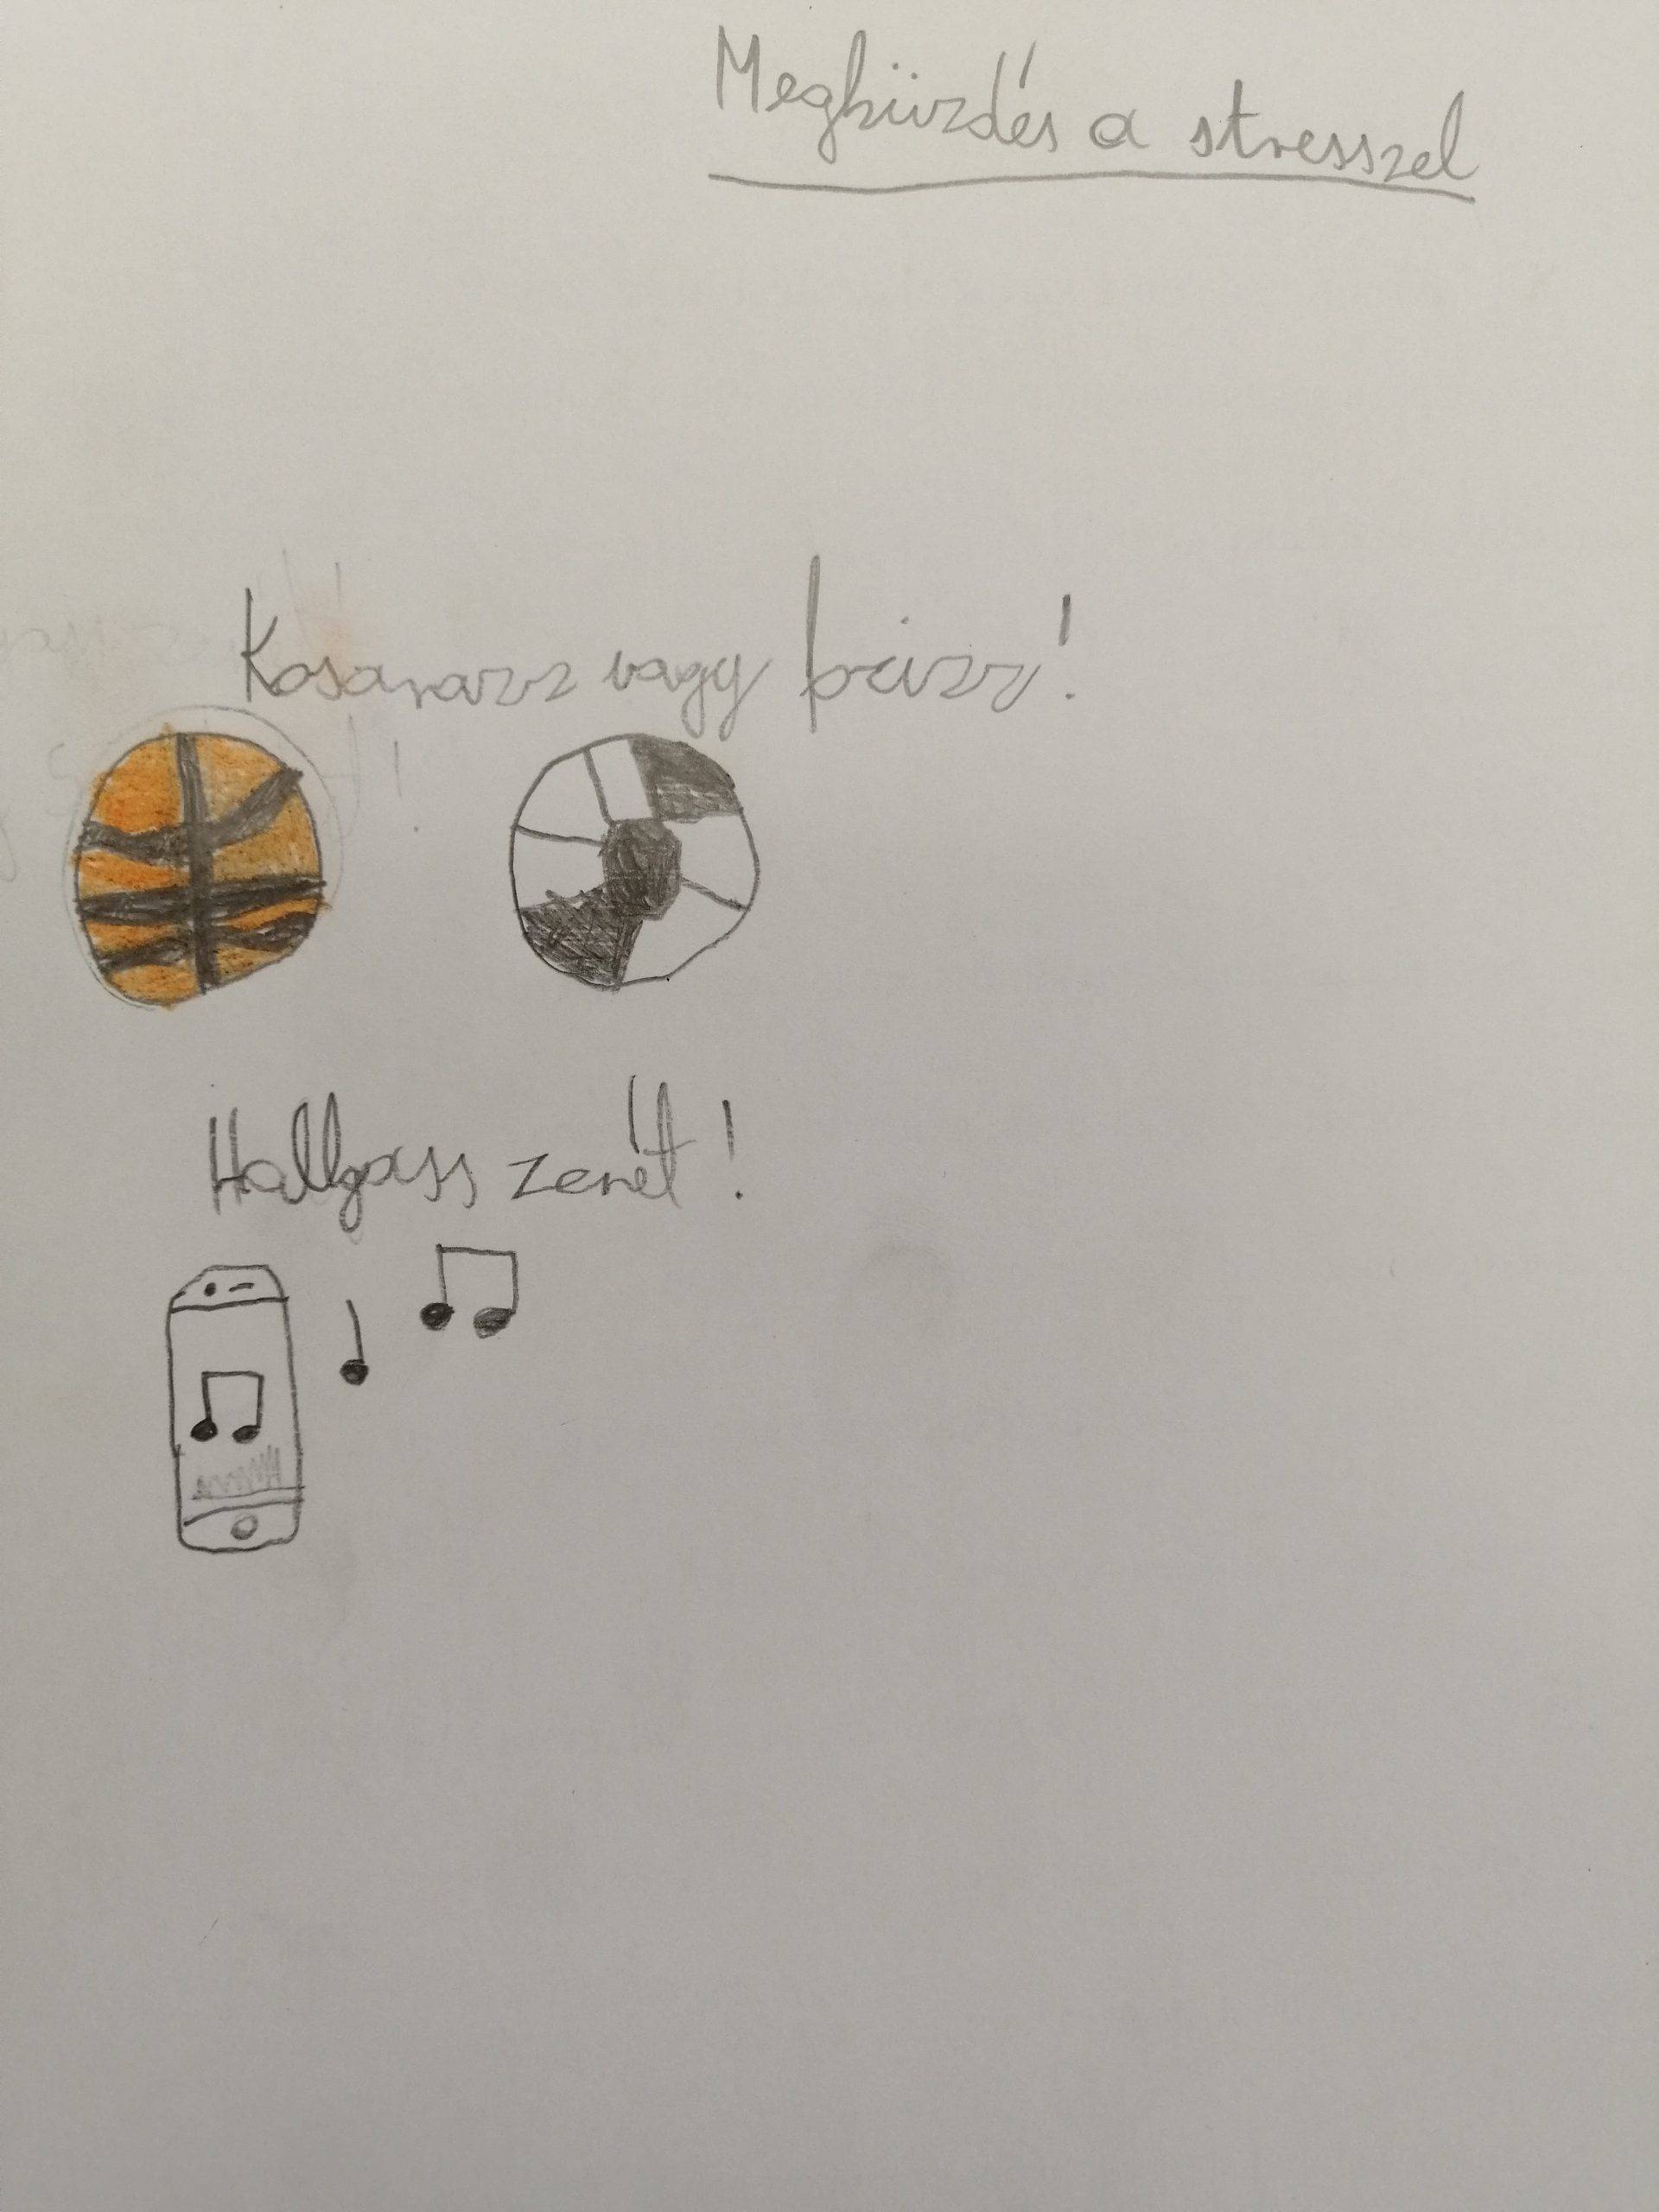 Megküzdés a stresszel
Kosarazz vagy focizz!
Hallgass zenét!